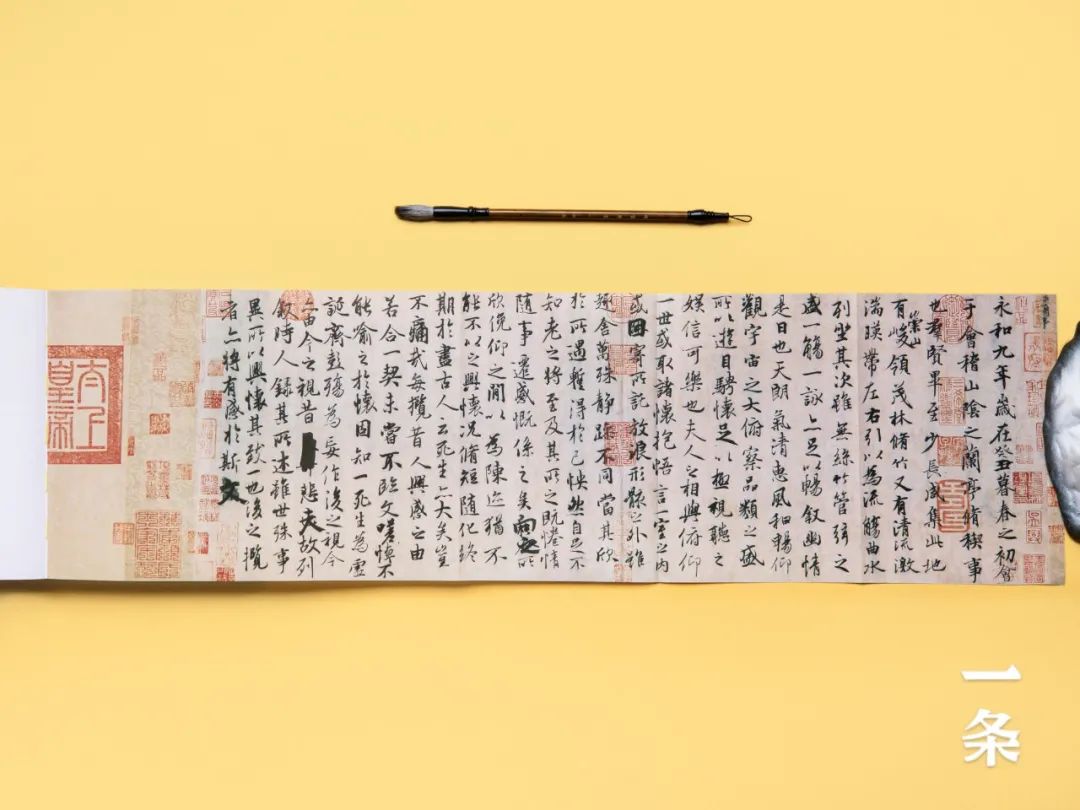 永和九年歲在癸丑暮春之初會
于會稽山陰之蘭亭脩稧事
也羣賢畢至少長咸集此地
有崇山峻領茂林脩竹又有清流激
湍暎帶左右引以為流觴曲水
列坐其次雖無絲竹管弦之
盛一觴一詠亦足以暢敘幽情
是日也天朗氣清惠風和暢仰
觀宇宙之大俯察品類之盛
所以遊目騁懷足以極視聽之
娛信可樂也夫人之相與俯仰
一世或取諸懷抱悟言一室之內
或因寄所託放浪形骸之外雖
趣舍萬殊靜躁不同當其欣
於所遇暫得於己怏然自足不
知老之將至及其所之既惓情
隨事遷感慨係之矣向之所
欣俛仰之間以為陳迹猶不
能不以之興懷況脩短隨化終
期於盡古人云死生亦大矣豈
不痛哉每攬昔人興感之由
若合一契未嘗不臨文嗟悼不
能喻之於懷固知一死生為虛
誕齊彭殤為妄作後之視今
亦由今之視昔悲夫故列
敘時人錄其所述雖世殊事
異所以興懷其致一也後之攬
者亦將有感於斯文
太上
皇帝
一条